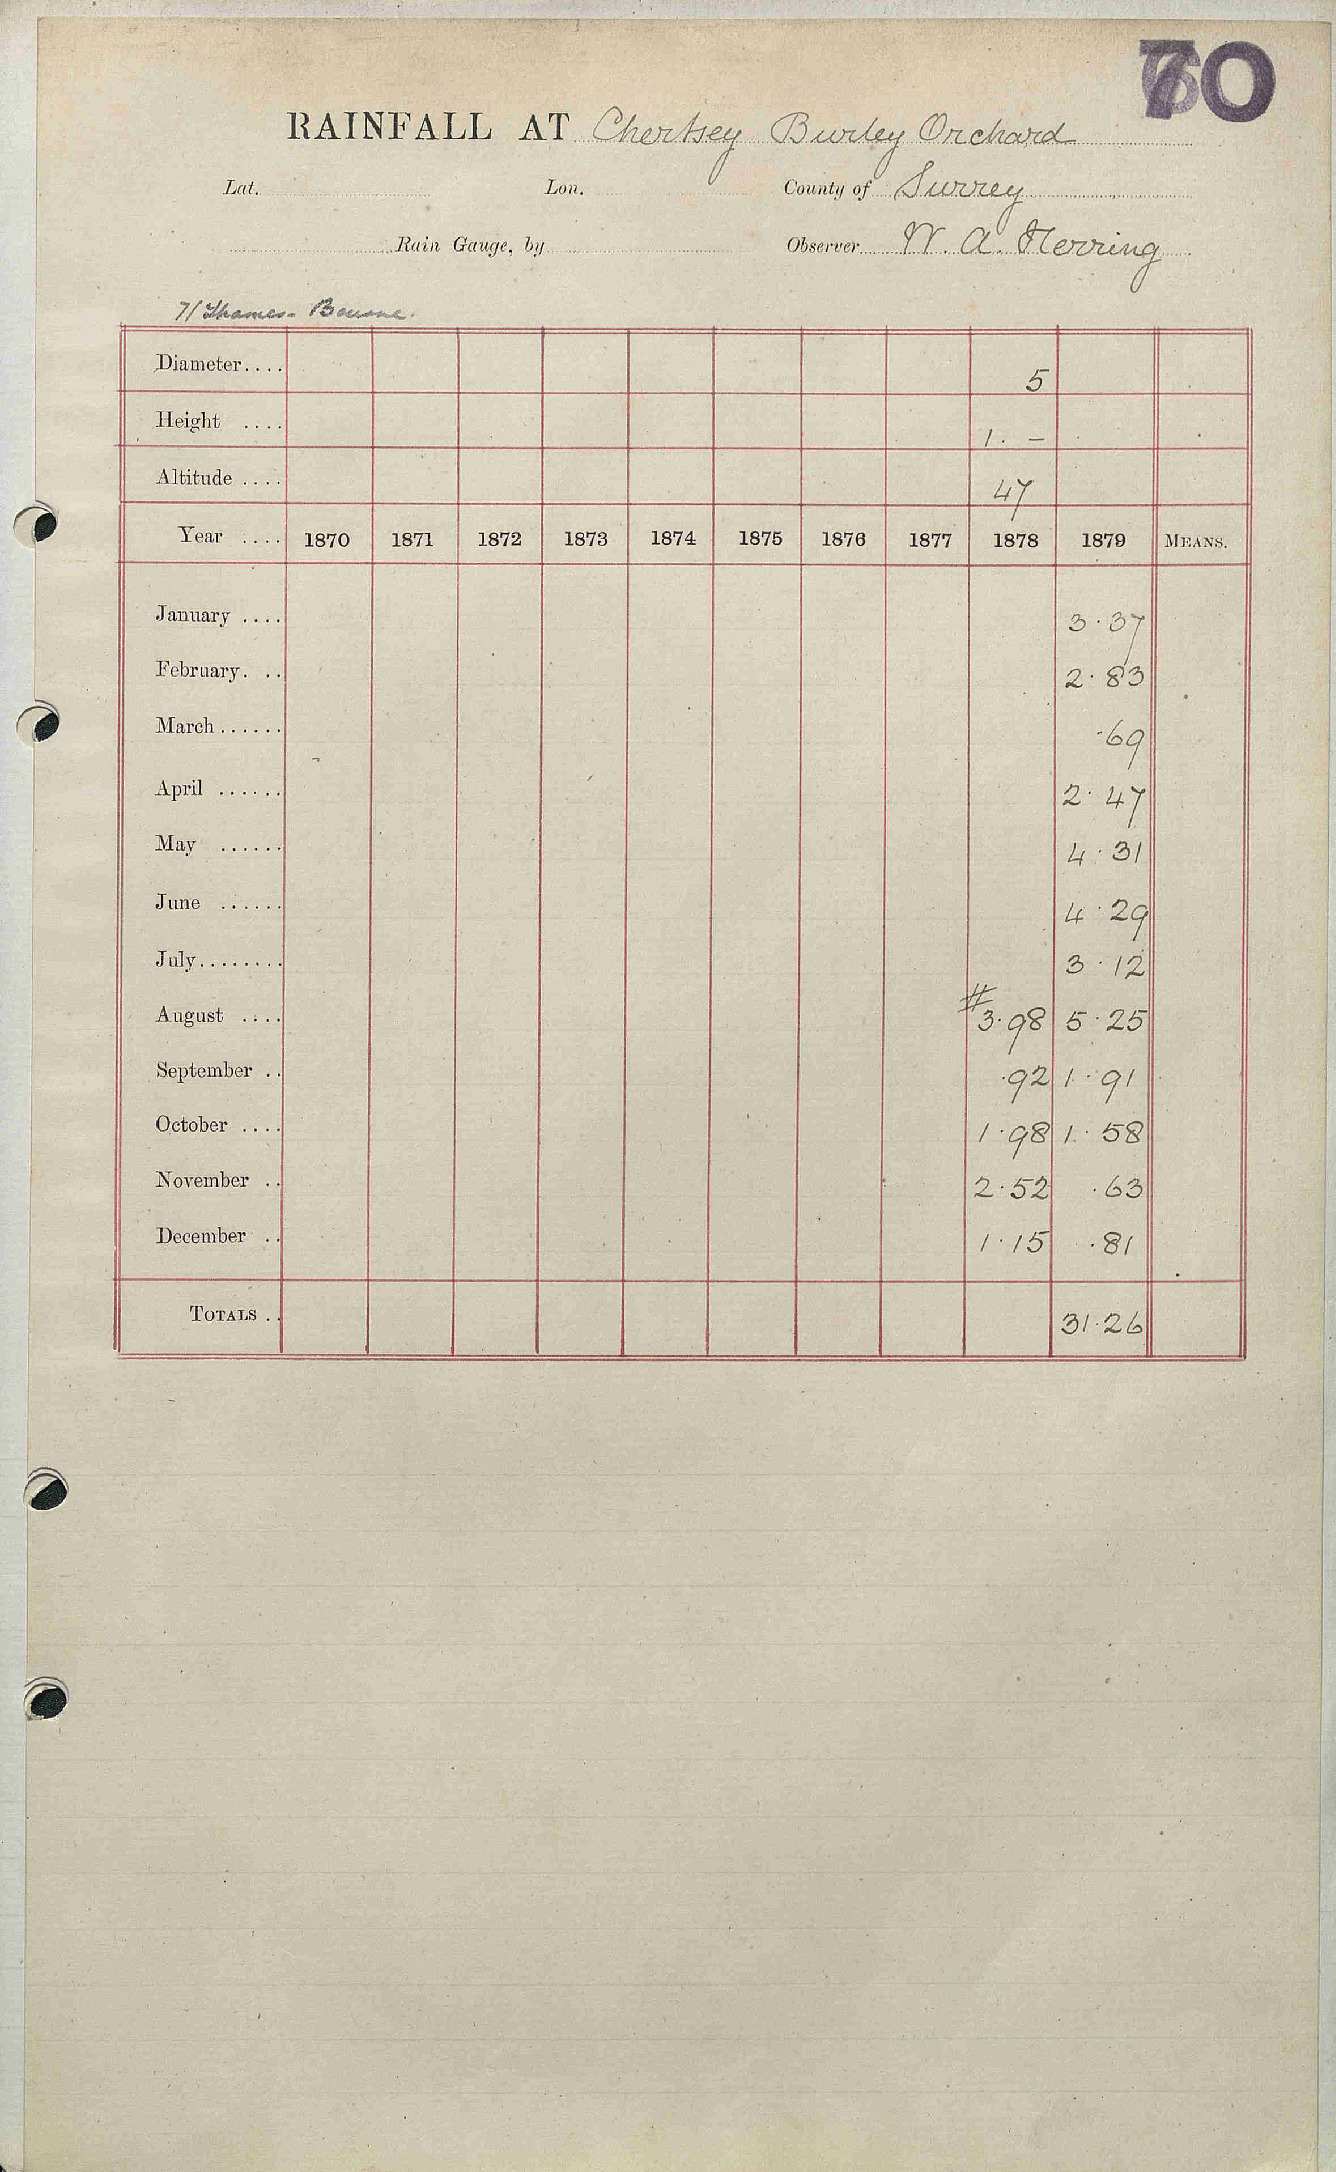 70
RAINFALL AT Chertsey Burley Orchard
Lat. Lon. County of Surrey
Rain Gauge, by Observer W. A. Herring
7/ Thames - Bourne.
Diameter.... 5
Height .... 1. –
Altitude .... 47
Year .... 1870 1871 1872 1873 1874 1875 1876 1877 1878 1879 MEANS.
January .... 3.37
February. .. 2.83
March...... .69
April ...... 2.47
May ...... 4.31
June ...... 4.29
July........ 3.12
August .... # 3.98 5.25
September .. .92 1.91
October .... 1.98 1.58
November .. 2.52 .63
December .. 1.15 .81
TOTALS .. 31.26